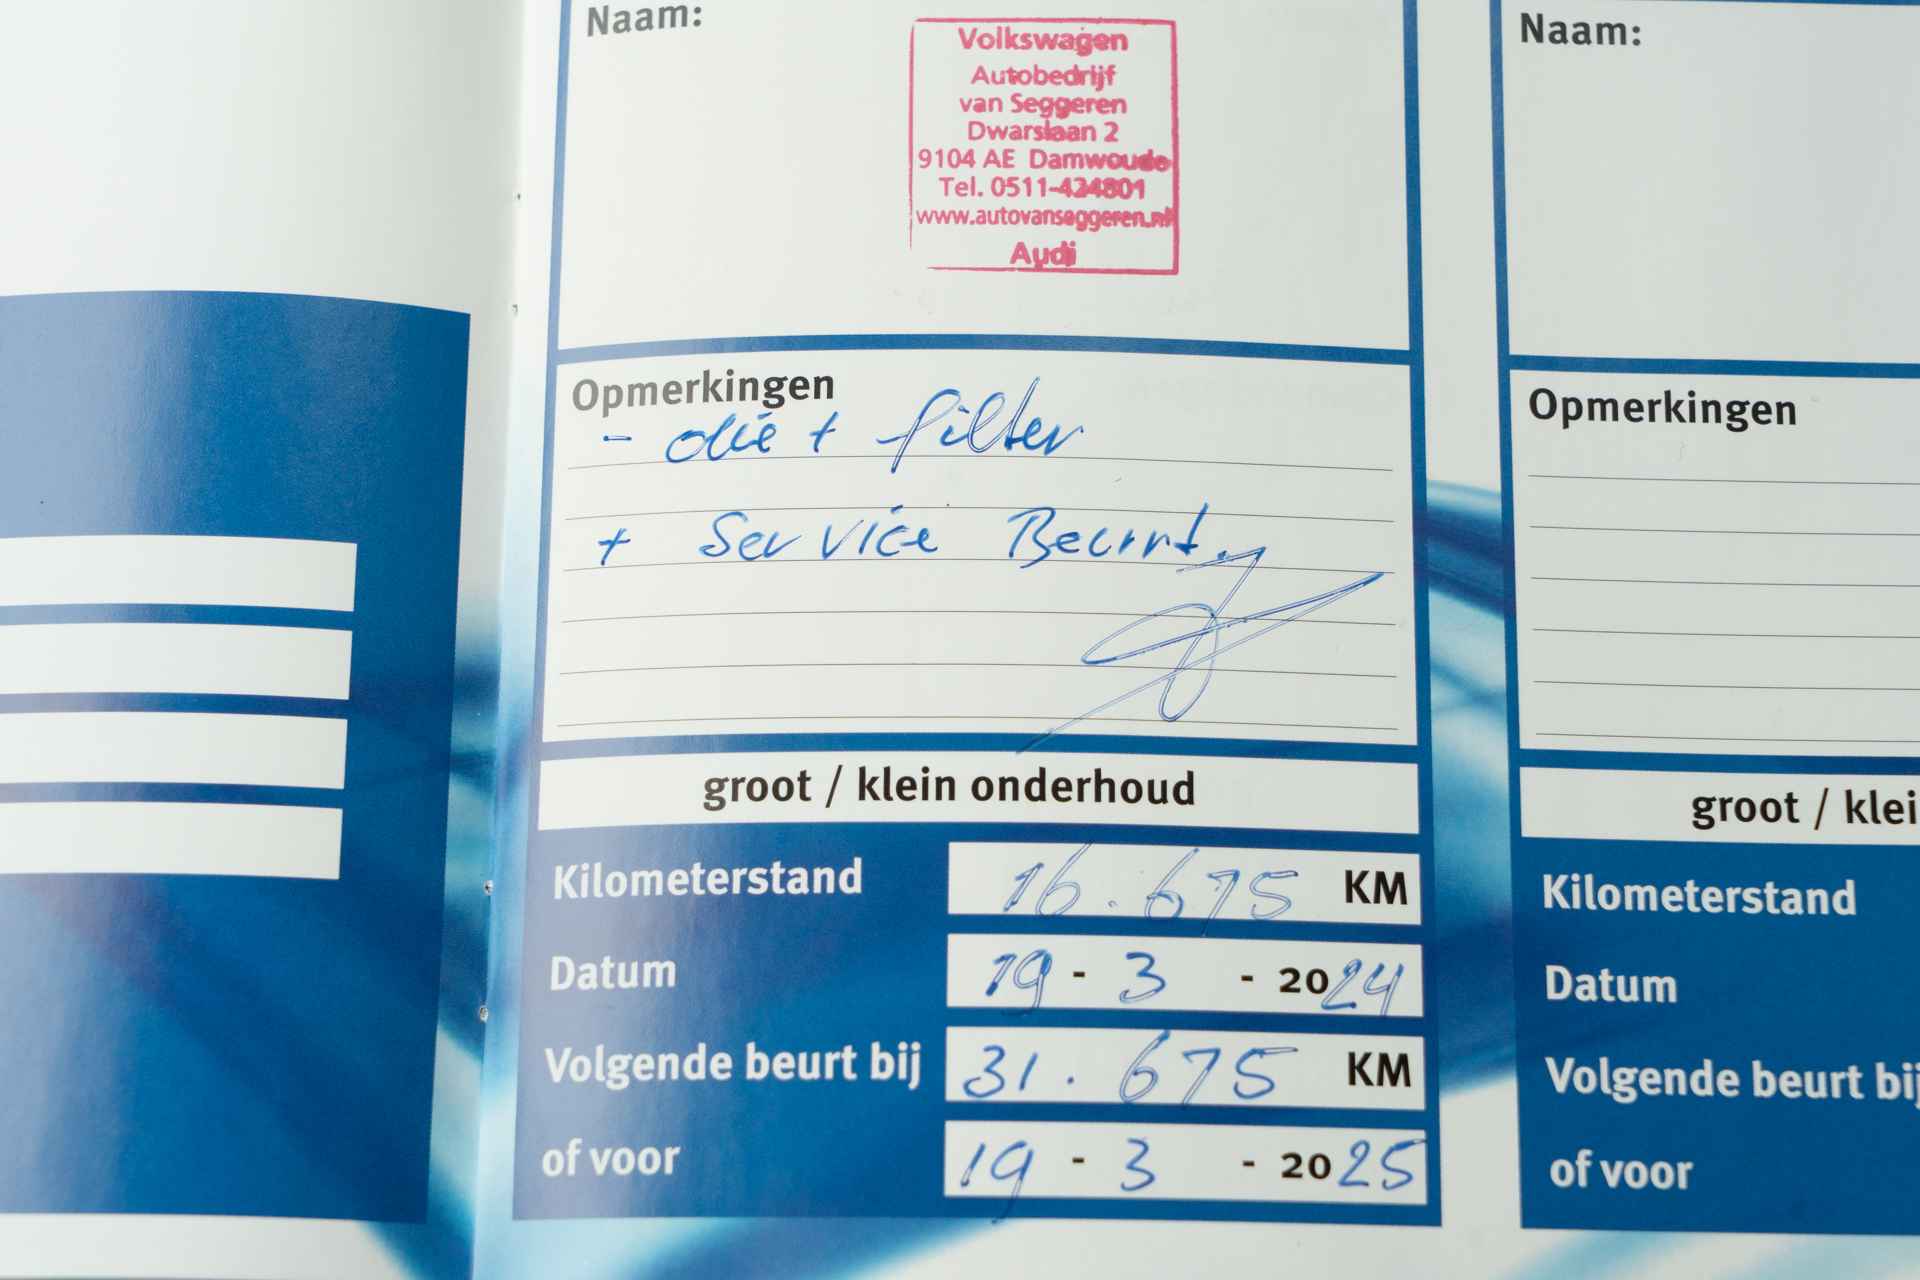 Naam:
Volkswagen
Autobedrijf
van Seggeren
Dwarslaan 2
9104 AE Damwoude
Tel. 0511-424801
www.autovanseggeren.nl
Audi
Opmerkingen
- olie + filter
+ Service Beurt.
groot / klein onderhoud
Kilometerstand 16.675 KM
Datum 19 - 3 - 2024
Volgende beurt bij 31.675 KM
of voor 19 - 3 - 2025
Naam:
Opmerkingen
groot / klei
Kilometerstand
Datum
Volgende beurt bij
of voor